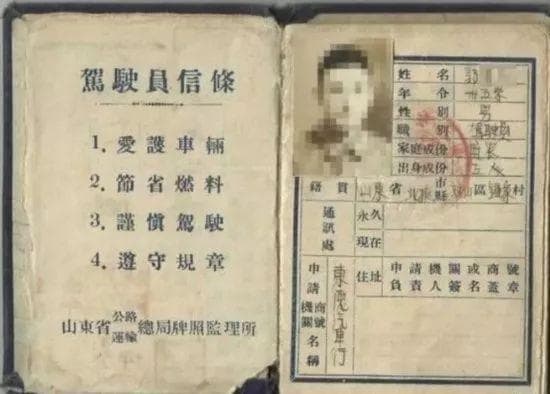 駕駛員信條
1.愛護車輛
2.節省燃料
3.謹慎駕駛
4.遵守規章
山東省公路運輸總局牌照監理所
姓名
年令 卅五岁
性別 男
職別 駕駛員
家庭成份
出身成份
籍貫 山東省 市縣 區 村
通訊處
永久
現在
住址
申請機關或商號
負責人簽名蓋章
申請商號機關名稱